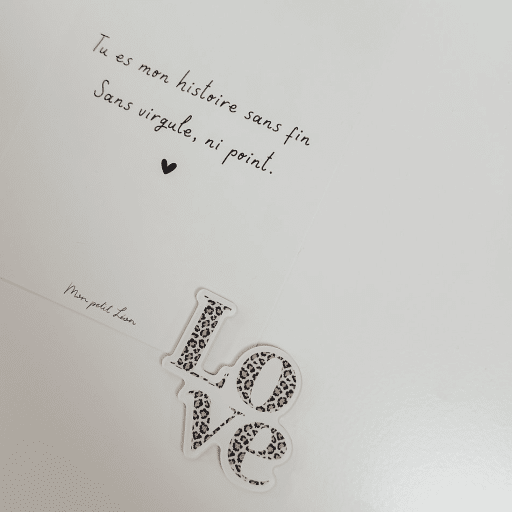 Tu es mon histoire sans fin
Sans virgule, ni point.
Mon petit Léon
Love